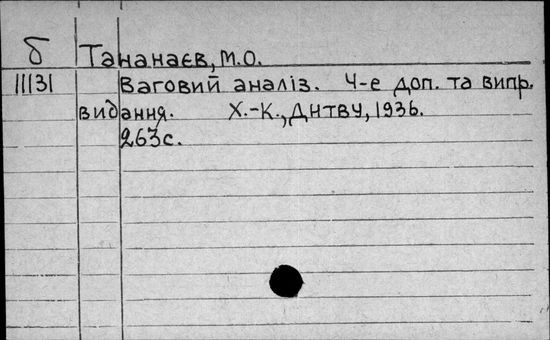 б Тананаєв, М.О.
11131 Ваговий аналіз. 4-е доп. та випр.
видання. Х.-К., ДНТВУ, 1936.
263с.